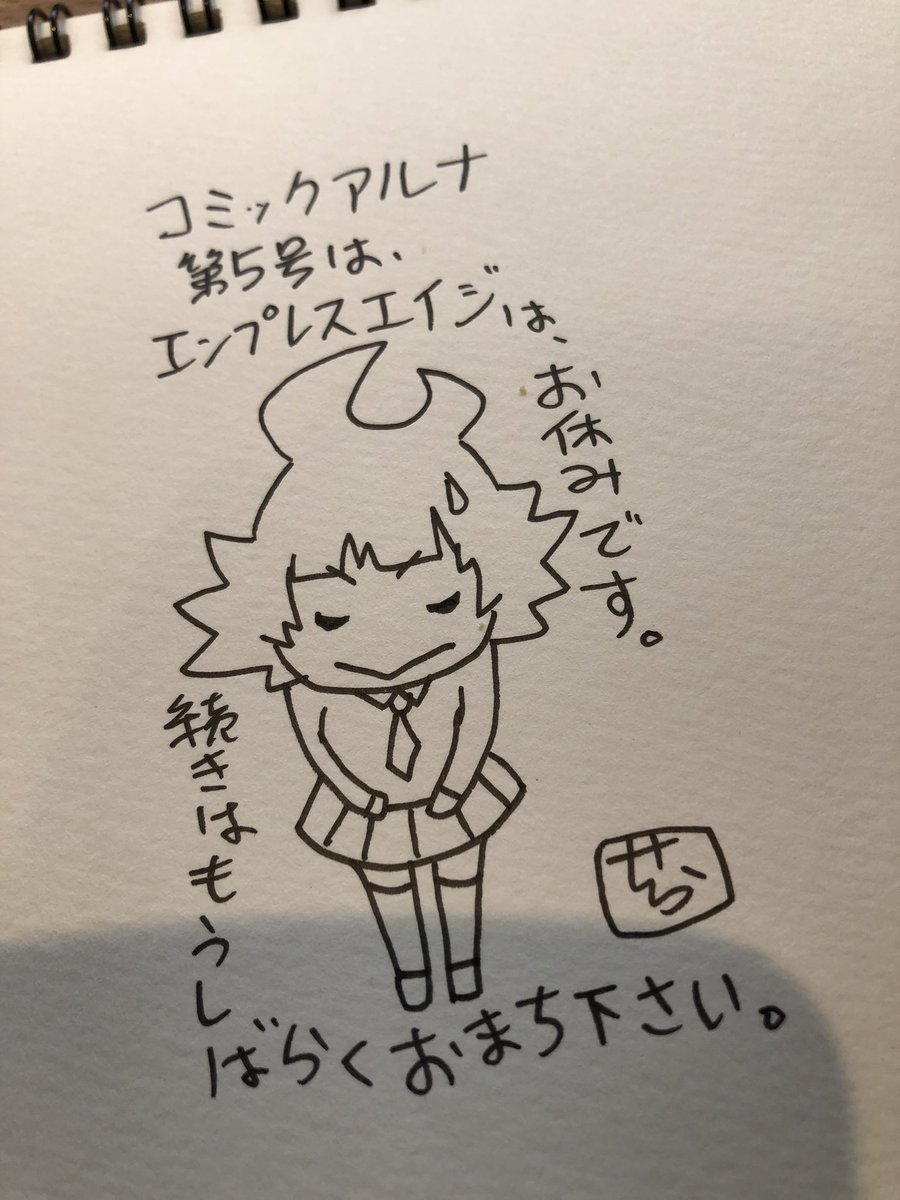 コミックアルナ
第5号は、
エンプレスエイジは、お休みです。
続きはもうしばらくおまち下さい。
せら